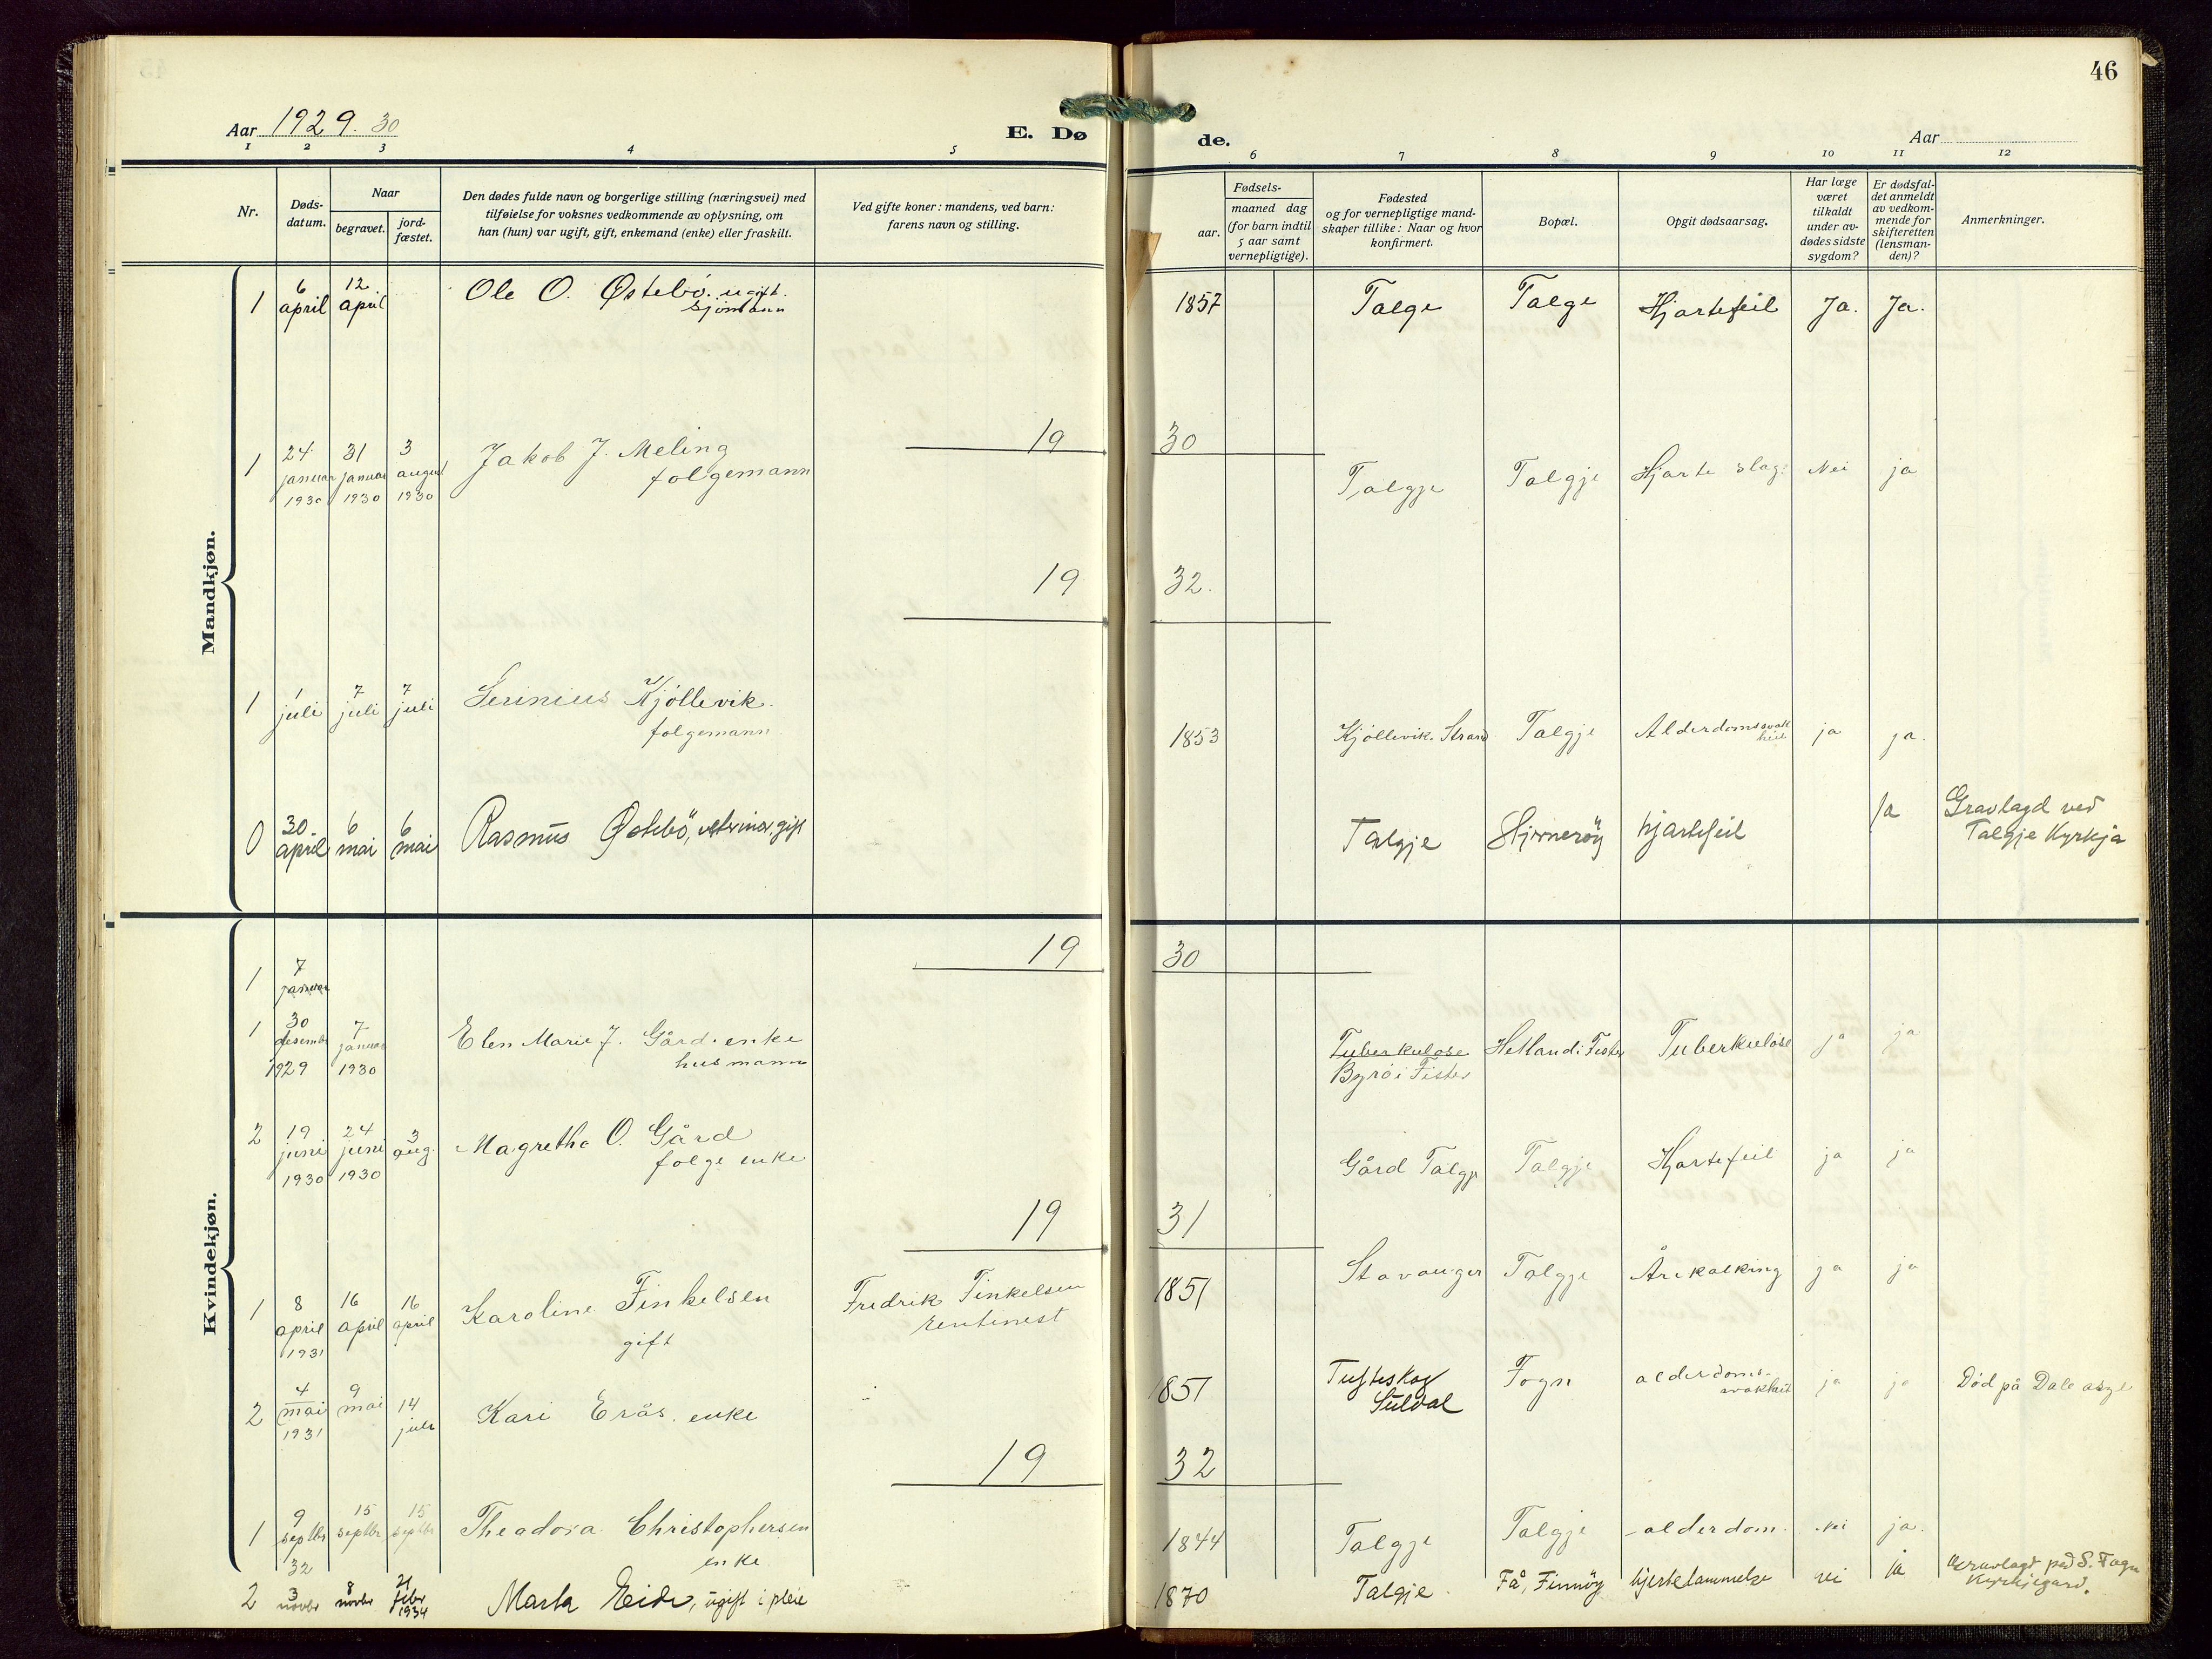 46
Aar 1929. 30
E. Dø
de.
Aar
1 2 3 4 5 6 7 8 9 10 11 12
Nr.
Døds-
datum.
Naar
begravet.
jord-
fæstet.
Den dødes fulde navn og borgerlige stilling (næringsvei) med
tilføielse for voksnes vedkommende av oplysning, om
han (hun) var ugift, gift, enkemand (enke) eller fraskilt.
Ved gifte koner: mandens, ved barn:
farens navn og stilling.
Fødsels-
aar.
maaned dag
(for barn indtil
5 aar samt
vernepligtige).
Fødested
og for vernepligtige mand-
skaper tillike: Naar og hvor
konfirmert.
Bopæl.
Opgit dødsaarsag.
Har læge
været
tilkaldt
under av-
dødes sidste
sygdom?
Er dødsfal-
det anmeldt
av vedkom-
mende for
skifteretten
(lensman-
den)?
Anmerkninger.
Mandkjøn.
1 6 april 12. april Ole O. Østebø. ugift. 1857 Talge Talge Hjartefeil Ja. Ja.
sjømann
19 30
1 24 januar 1930 31 januar 1930 3 august 1930 Jakob J. Meling Talgje Talgje Hjarte slag. Nei ja
folgemann
19 32.
1 1 juli 7 juli 7 juli Serinius Kjöllevik. 1853 Kjöllevik. Strand Talgje Alderdomssvakheit ja ja.
folgemann
0 30. april 6 mai 6 mai Rasmus Østebö, veterinær, gift Talgje Hjernerøy hjartefeil Ja Gravlagd ved
Talgje Kyrkja
Kvindekjøn.
19 30
1 7 januar
1 30 desembr 1929 7 januar 1930 Elen Marie J. Gård. enke Tuberkulose Helland i Fister Tuberkulose ja ja
husmann Byrø i Fister
2 19 juni 1930 24 juni 1930 3 aug. Magretha O. Gård Gård Talgje Talgje Hjartefeil ja ja
folge enke
19 31
1 8 april 1931 16 april 16 april Karoline Finkelsen Fredrik Finkelsen 1851 Stavanger Talgje Årekalking ja ja
gift rentinest
2 4 mai 1931 9 mai 14 juli Kari Erås. enke 1851 Tufteskog Fogn alderdoms- ja ja Död på Dale
Suldal svakheit
19 32
1 9 septbr 32 15 septbr 15 septbr Theodora Christophersen 1844 Talgje Talgje alderdom. Nei ja.
enke
2 3 novbr 8 novbr 21 febr 1934 Marta Eide, ugift i pleie 1870 Talgje Få, Finnøy hjertelammelse nei ja Gravlagt på S. Fogn
Kyrkjegard.